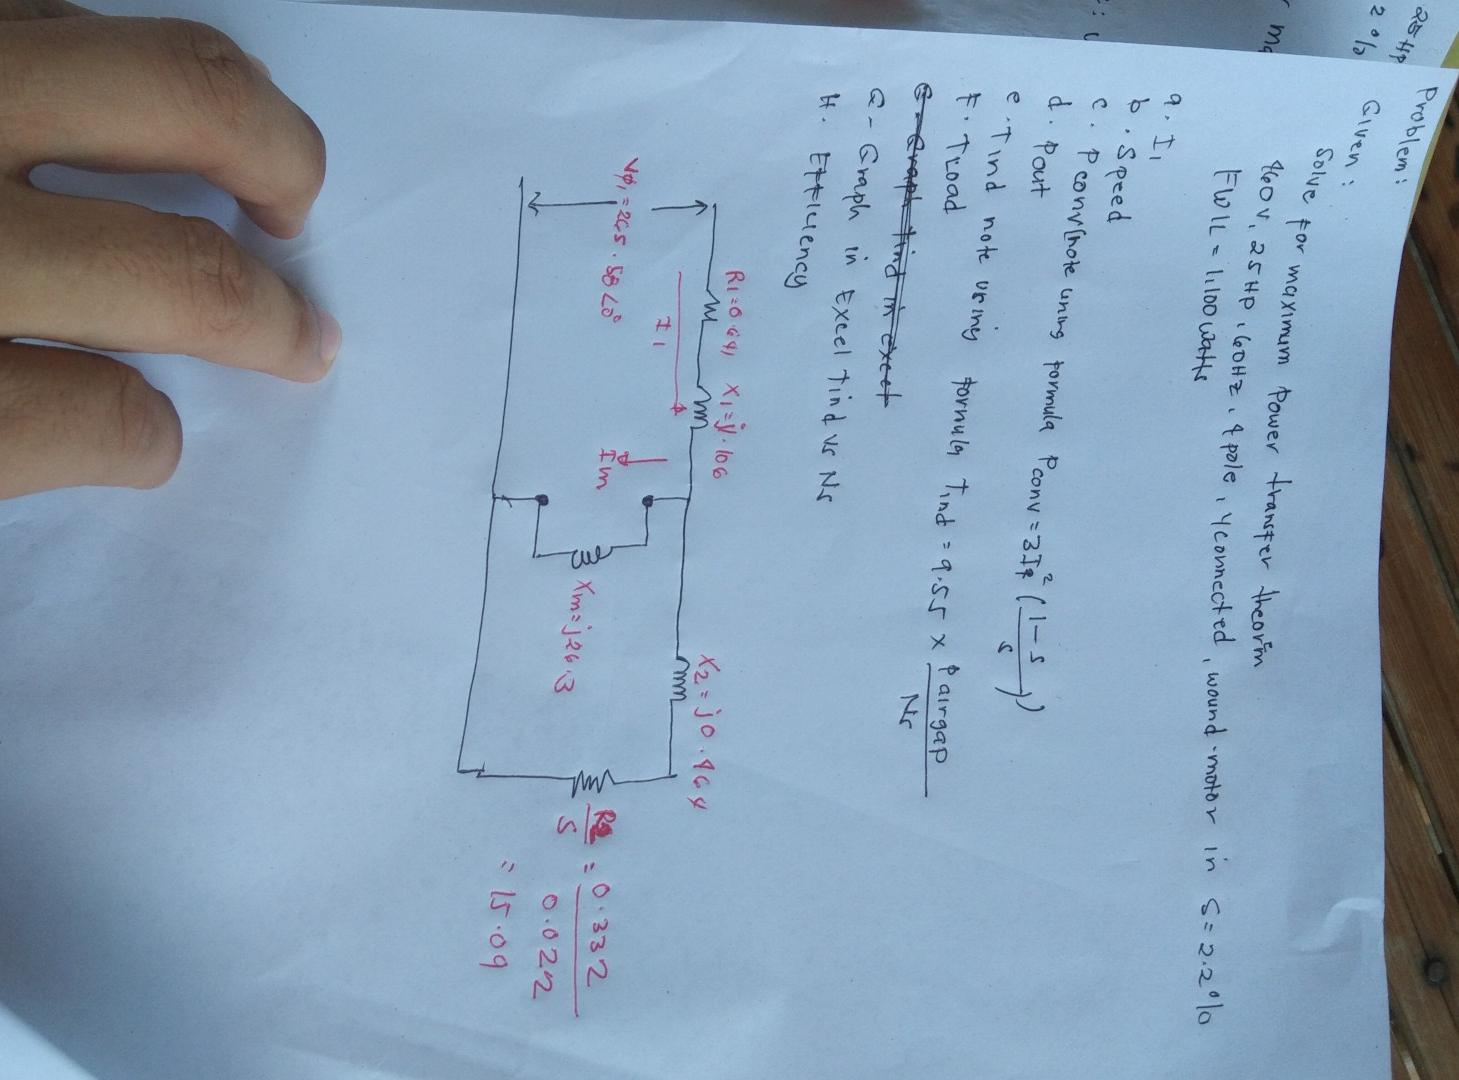 Problem:
Given:
Solve for maximum power transfer theorem
460V, 25HP, 60Hz, 4 pole, Y connected, wound-motor in S=2.2%
FWLL = 1,100 watts
a. I1
b. Speed
c. Pconv (note using formula Pconv = 3I2² (1-s/s))
d. Pout
e. Tind note using formula Tind = 9.55 x Pairgap/Ns
F. TLoad
G - Graph Tind in excel
G - Graph in Excel Tind vs Ns
H. Efficiency
R1=0.641 X1=j1.106 X2=j0.464
I1
Vφ1=265.58<0°
Im
Xm=j26.3
R2/S = 0.332/0.022
= 15.09
25 HP
2%